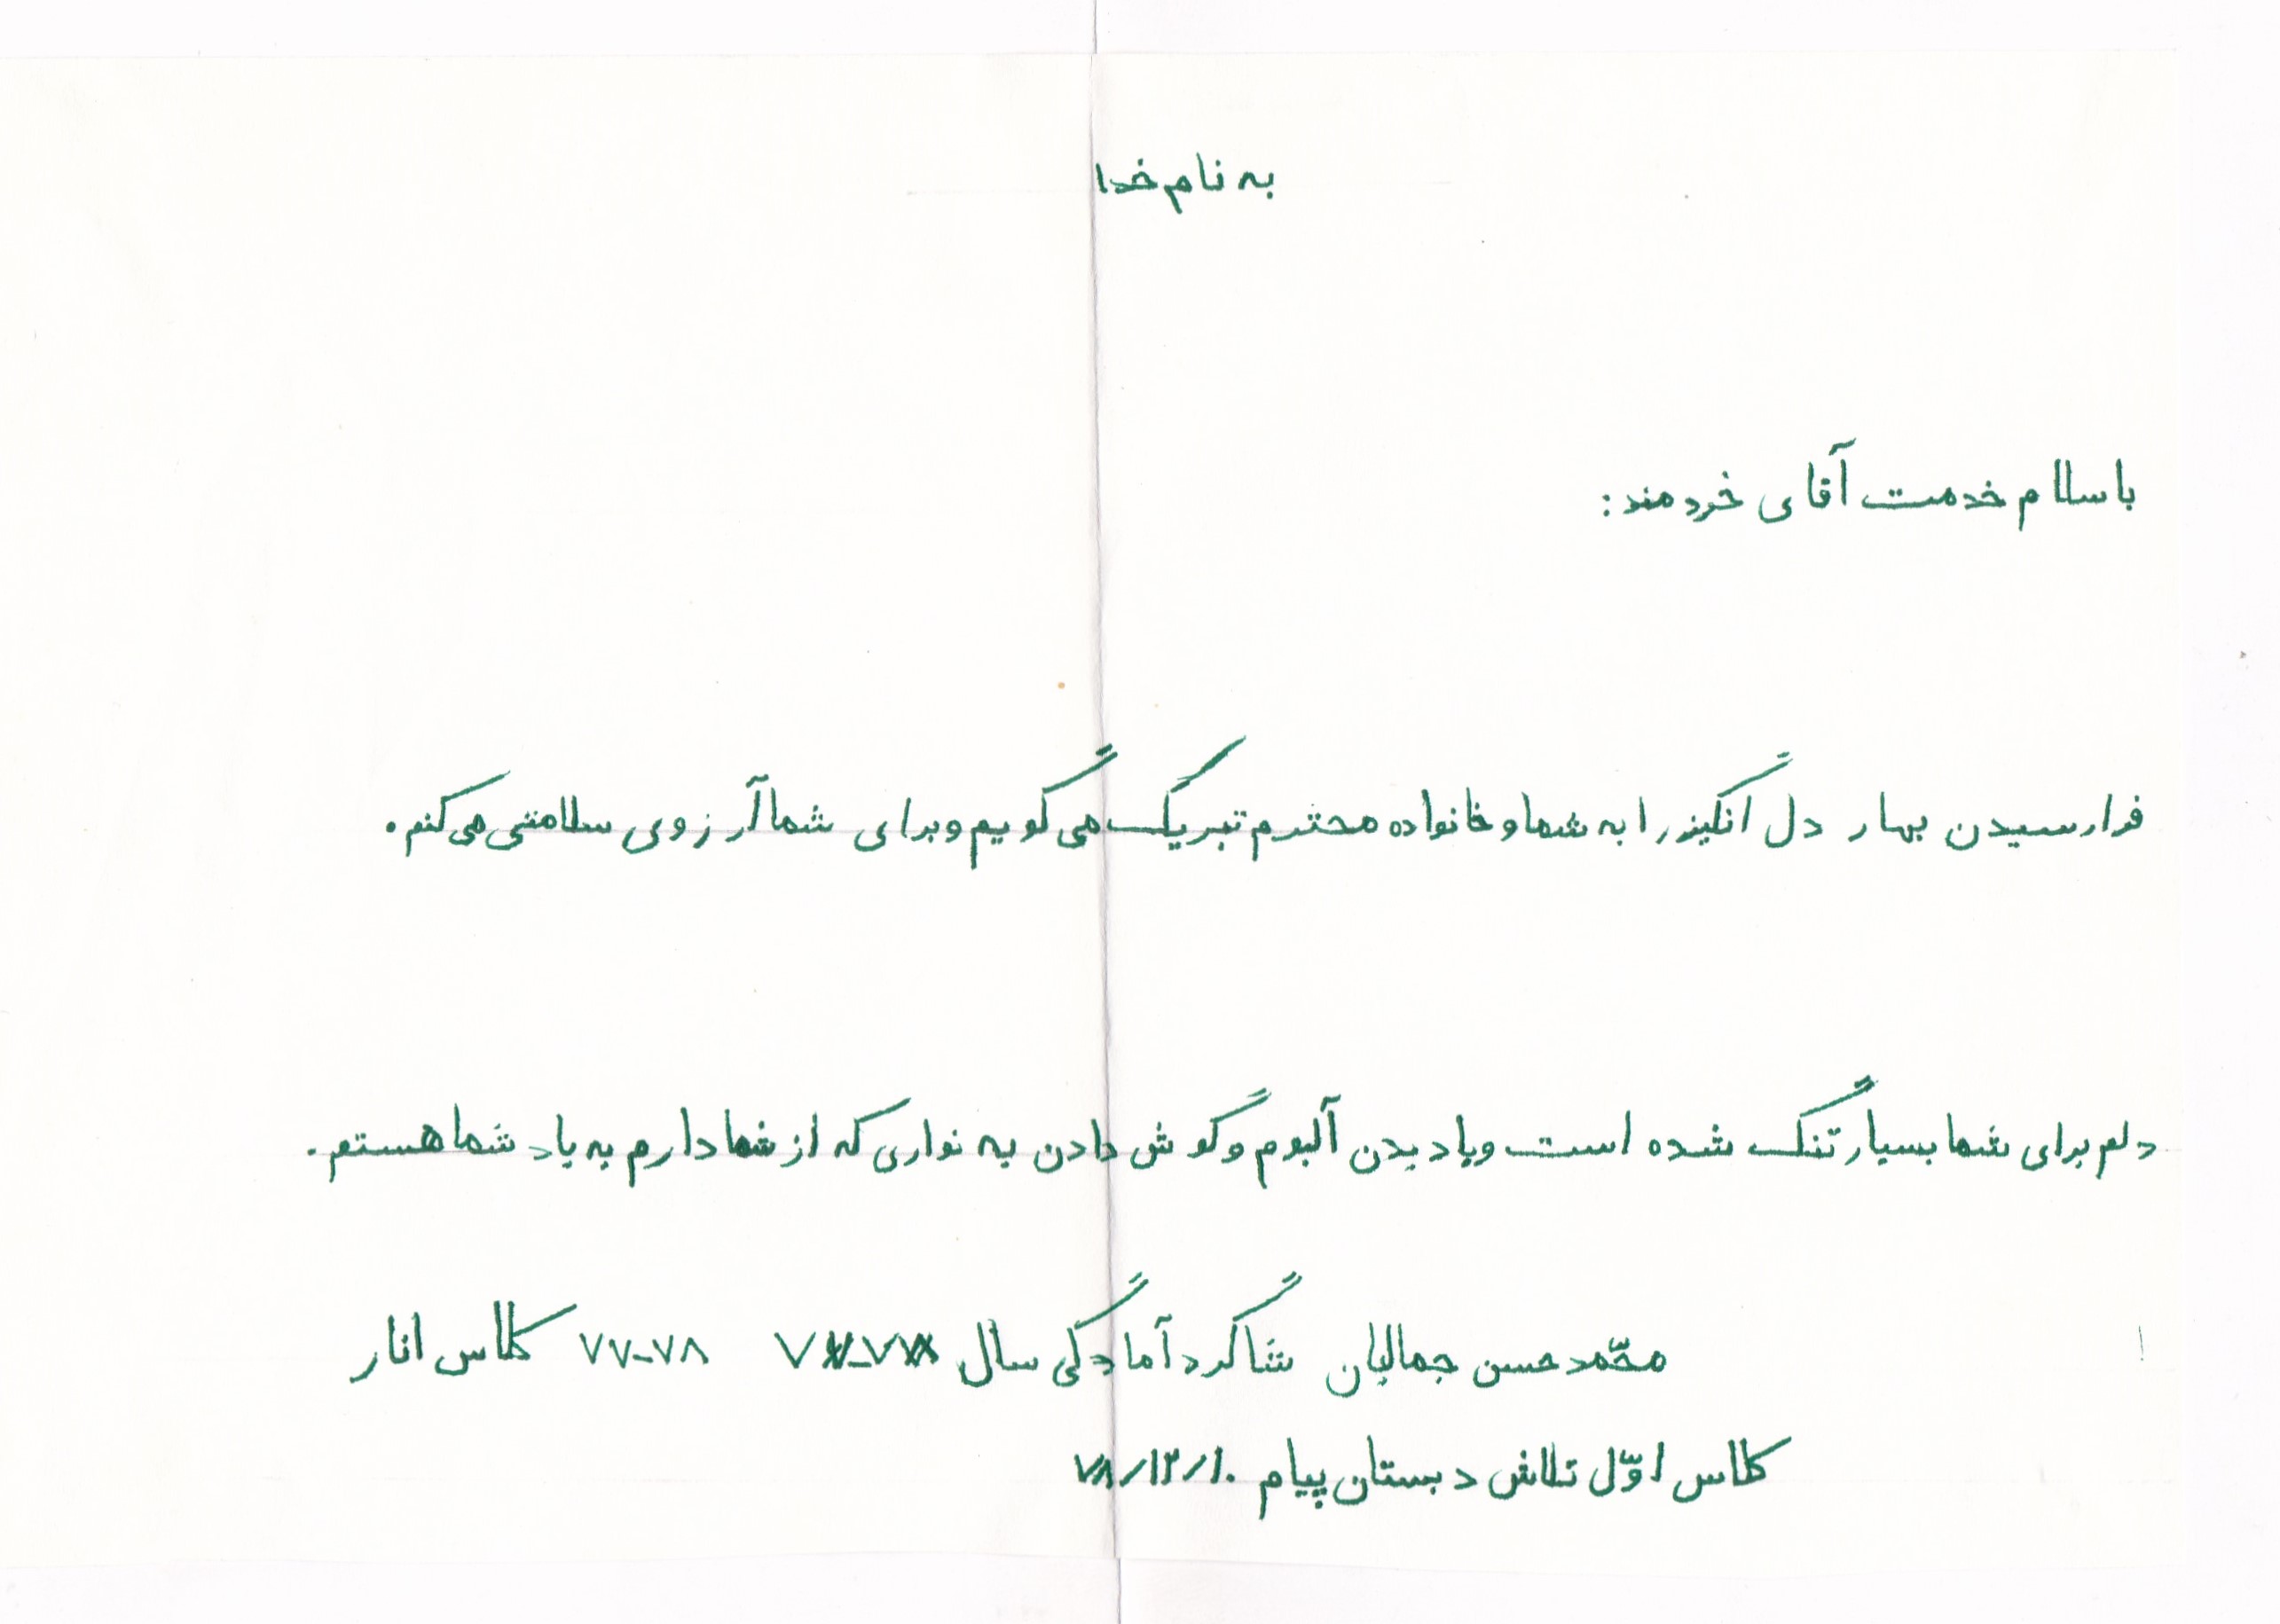 به نام خدا
با سلام خدمت آقای خردمند:
فرا رسیدن بهار دل انگیز را به شما و خانواده محترم تبریک می گویم و برای شما آرزوی سلامتی می کنم.
دلم برای شما بسیار تنگ شده است و با دیدن آلبوم و گوش دادن به نواری که از شما دارم به یاد شما هستم.
محمّد حسن جمالیان شاگرد آمادگی سال ۷۷-۷۸ کلاس انار
کلاس اوّل تلاش دبستان پیام ۷۸/۱۲/۱۰